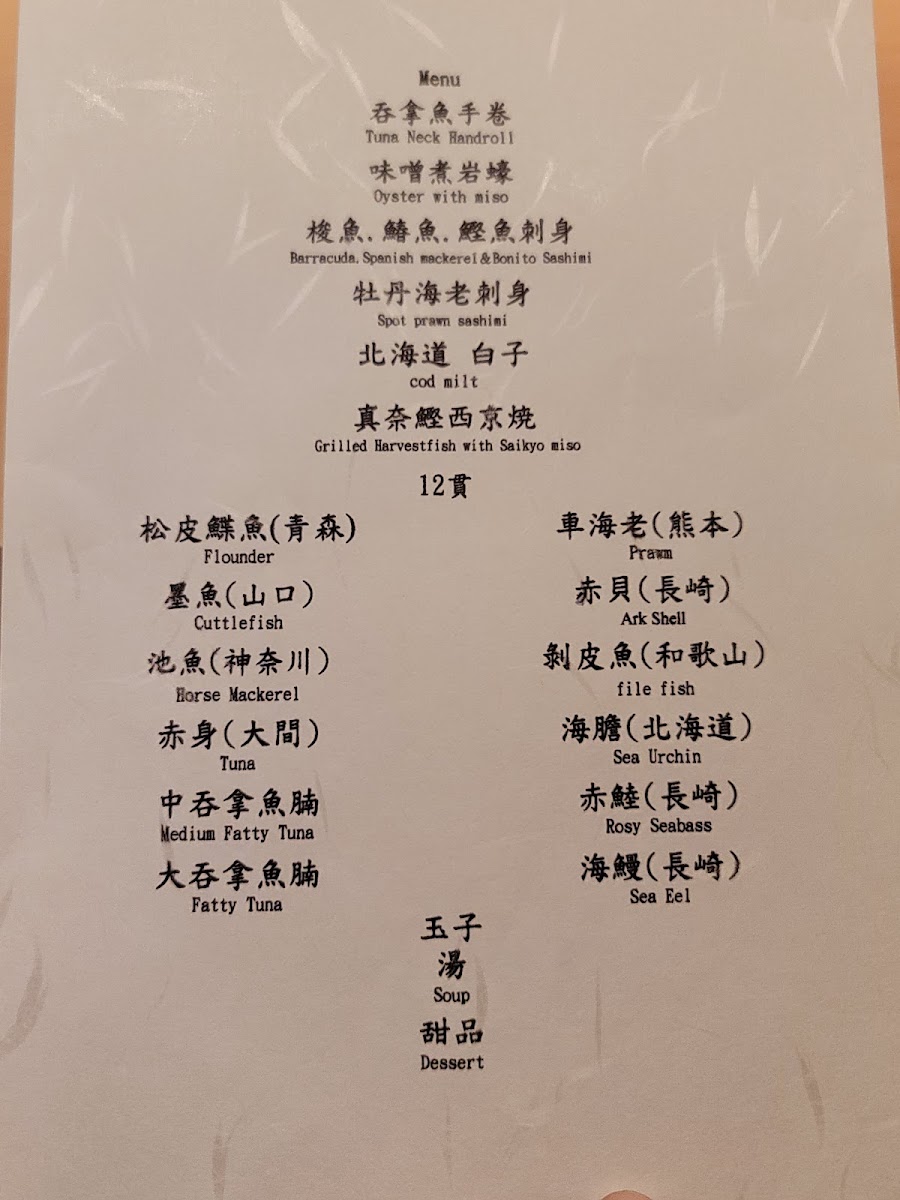 Menu
吞拿魚手卷
Tuna Neck Handroll
味噌煮岩蠔
Oyster with miso
梭魚.鰆魚.鰹魚刺身
Barracuda.Spanish mackerel&Bonito Sashimi
牡丹海老刺身
Spot prawn sashimi
北海道 白子
cod milt
真奈鰹西京焼
Grilled Harvestfish with Saikyo miso
12貫
松皮鰈魚(青森)
Flounder
墨魚(山口)
Cuttlefish
池魚(神奈川)
Horse Mackerel
赤身(大間)
Tuna
中吞拿魚腩
Medium Fatty Tuna
大吞拿魚腩
Fatty Tuna
車海老(熊本)
Prawn
赤貝(長崎)
Ark Shell
剝皮魚(和歌山)
file fish
海膽(北海道)
Sea Urchin
赤鯥(長崎)
Rosy Seabass
海鰻(長崎)
Sea Eel
玉子
湯
Soup
甜品
Dessert